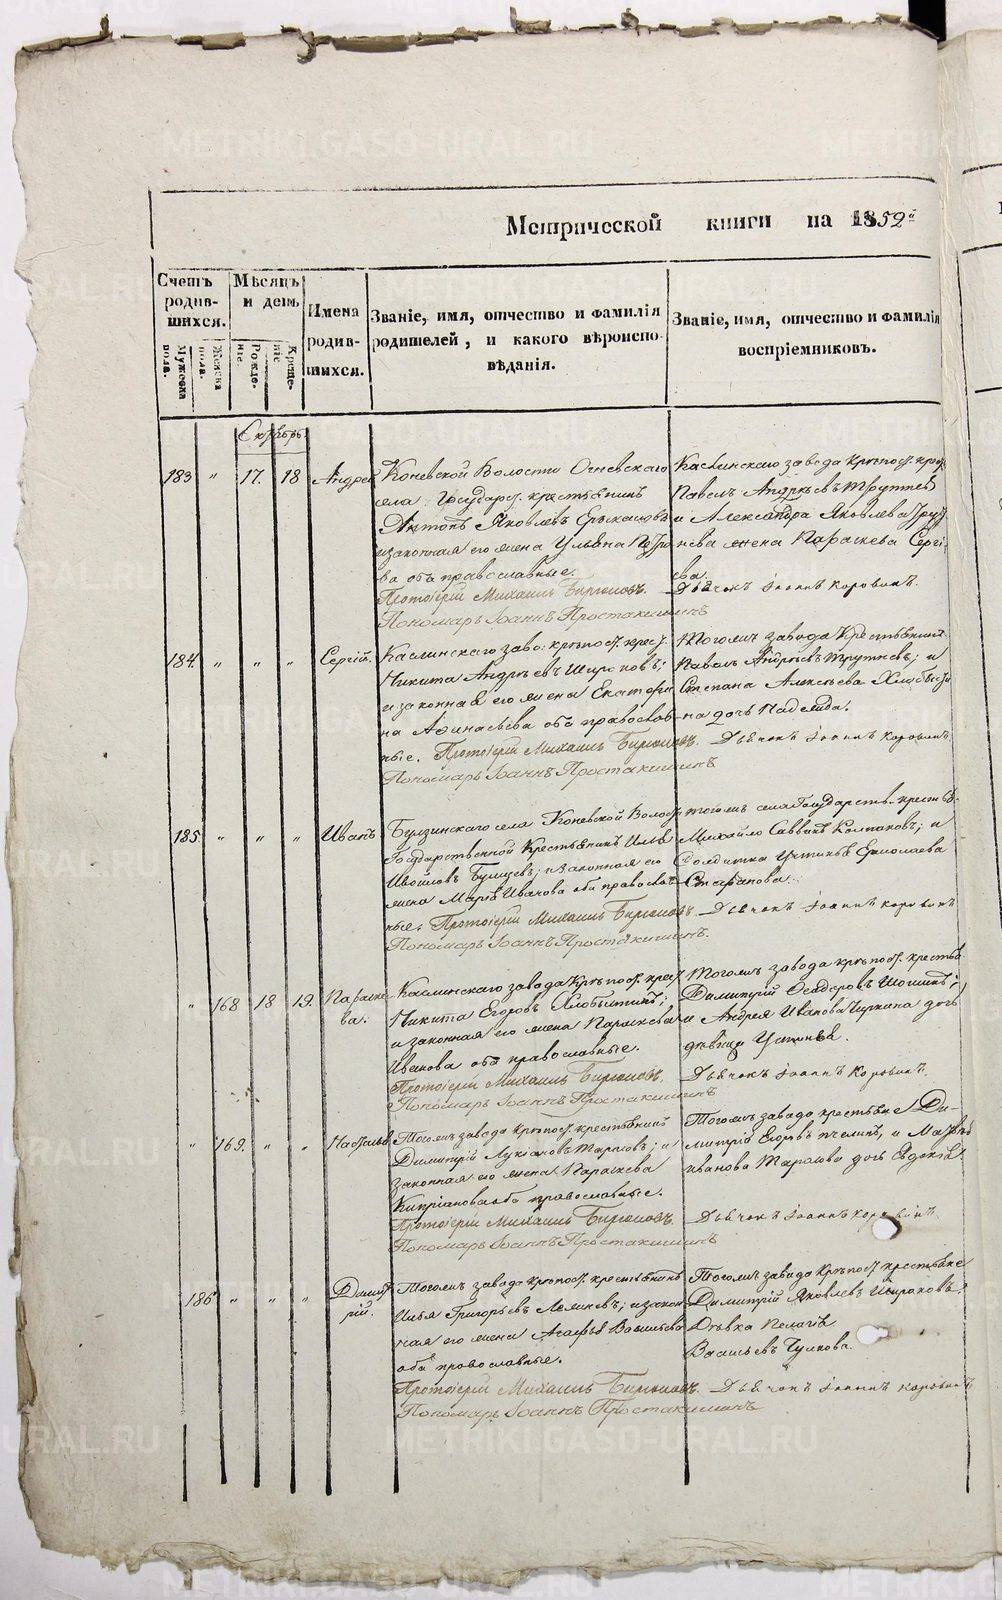 METRIKI.GASO-URAL.RU
Метрической книги на 1852й
Счетъ родив-шихся.
Мужеска пола.
Женска пола.
Мѣсяцъ и день
Рожде-ніе.
Креще-ніе
Имена родив-шихся.
Званіе, имя, отчество и фамилія
родителей, и какого вѣроиспо-
вѣданія.
Званіе, имя, отчество и фамилія
воспріемниковъ.
183 " 17. 18 Андрей
Коневской Волости Огневскаго
села Государст. крестьянинъ
Антонъ Яковлевъ
и законная его жена Ульяна
ва оба православные.
Протоіерей Михаилъ Бирюковъ.
Пономарь Іоаннъ Простакишинъ
Каслинскаго завода крѣпост. крест.
Павелъ Андреевъ Трутневъ
и Александра Яковлева Трут
нева жена Параскева Сергі
ева.
Дьячокъ Іоаннъ Коровинъ.
184. " " " Сергій.
Каслинскаго заво: крѣпост. крест.
Никита Андреевъ
и законная его жена Екатери
на Афинасьева оба православ
ные. Протоіерей Михаилъ Бирюковъ.
Пономарь Іоаннъ Простакишинъ
Тогожъ завода Крестьянинъ
Павелъ Андреевъ Трутневъ; и
Степана Алексѣева Хлобысти
на дочь Надежда.
Дьячокъ Іоаннъ Коровинъ
185. " " " Иванъ
села Коневской Волост
Государственной Крестьянинъ
и законная его
жена Марія Иванова оба православ
ные. Протоіерей Михаилъ Бирюковъ
Пономарь Іоаннъ Простакишинъ.
тогожъ села Государств. крестья.
Михайло Саввинъ Колпаковъ; и
Солдатка Устинья Ермолаева
Стафанова.
Дьячокъ Іоаннъ Коровинъ
" 168 18 19. Параске
ва.
Каслинскаго завода Крѣпост. крест
Никита Егоровъ Хлобыстинъ;
и законная его жена Параскева
Иванова оба православные.
Протоіерей Михаилъ Бирюковъ.
Пономарь Іоаннъ Простакишинъ
Тогожъ завода крѣпост. крестья
Димитрій Федоровъ
и Андрея Иванова дочь
дѣвица Устинья.
Дьячокъ Іоаннъ Коровинъ.
" 169. " " Наталья
Тогожъ завода Крѣпост. крестьянинъ
Димитрій Лукіановъ Тарасовъ; и
законная его жена Параскева
Кипріановна оба православные.
Протоіерей Михаилъ Бирюковъ.
Пономарь Іоаннъ Простакишинъ
Тогожъ завода крестьяне Ди-
митрій Егоровъ Пчелинъ, и
Иванова Тарасова дочь Евдокія.
Дьячокъ Іоаннъ Коровинъ.
186 " " " Димит
рій.
Тогожъ завода Крѣпост. крестьянинъ
Илья Григорьевъ и закон
ная его жена Агафья Васильева
оба православные.
Протоіерей Михаилъ Бирюковъ.
Пономарь Іоаннъ Простакишинъ
Тогожъ завода Крѣпост. крестьяне
Димитрій Яковлевъ
Дѣвка Пелагія
Васильевъ Чулкова.
Дьячокъ Іоаннъ Коровинъ